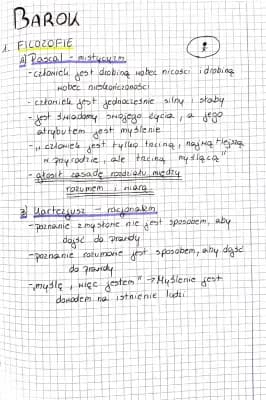 BAROK
1. FILOZOFIE
A) Pascal - mistycyzm
- człowiek jest drobiną wobec nicości i drobiną
wobec nieskończoności
- człowiek jest jednocześnie silny i słaby
- jest świadomy swojego życia, a jego
atrybutem jest myślenie
- "człowiek jest tylko trzciną, najwątlejszą
w przyrodzie, ale trzciną myślącą"
- głosił zasadę rozdziału między
rozumem i wiarą
B) Kartezjusz - racjonalizm
- poznanie zmysłowe nie jest sposobem, aby
dojść do prawdy
- poznanie rozumowe jest sposobem, aby dojść
do prawdy
- "myślę, więc jestem" → Myślenie jest
dowodem na istnienie ludzi